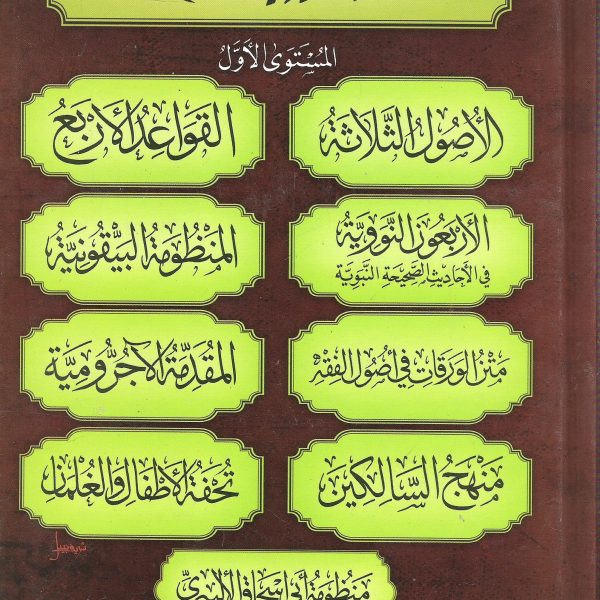 المُسْتَوَى الأَوَّلُ
الأُصُولُ الثَّلَاثَةُ
القَوَاعِدُ الأَرْبَعُ
الأَرْبَعُونَ النَّوَوِيَّةُ
فِي الأَحَادِيثِ الصَّحِيحَةِ النَّبَوِيَّةِ
المَنْظُومَةُ البَيْقُونِيَّةُ
مَتْنُ الوَرَقَاتِ فِي أُصُولِ الفِقْهِ
المُقَدِّمَةُ الآجُرُّومِيَّةُ
مَنْهَجُ السَّالِكِينَ
تُحْفَةُ الأَطْفَالِ وَالغِلْمَانِ
مَنْظُومَةُ أَبِي إِسْحَاقَ الأَلْبِيرِيِّ